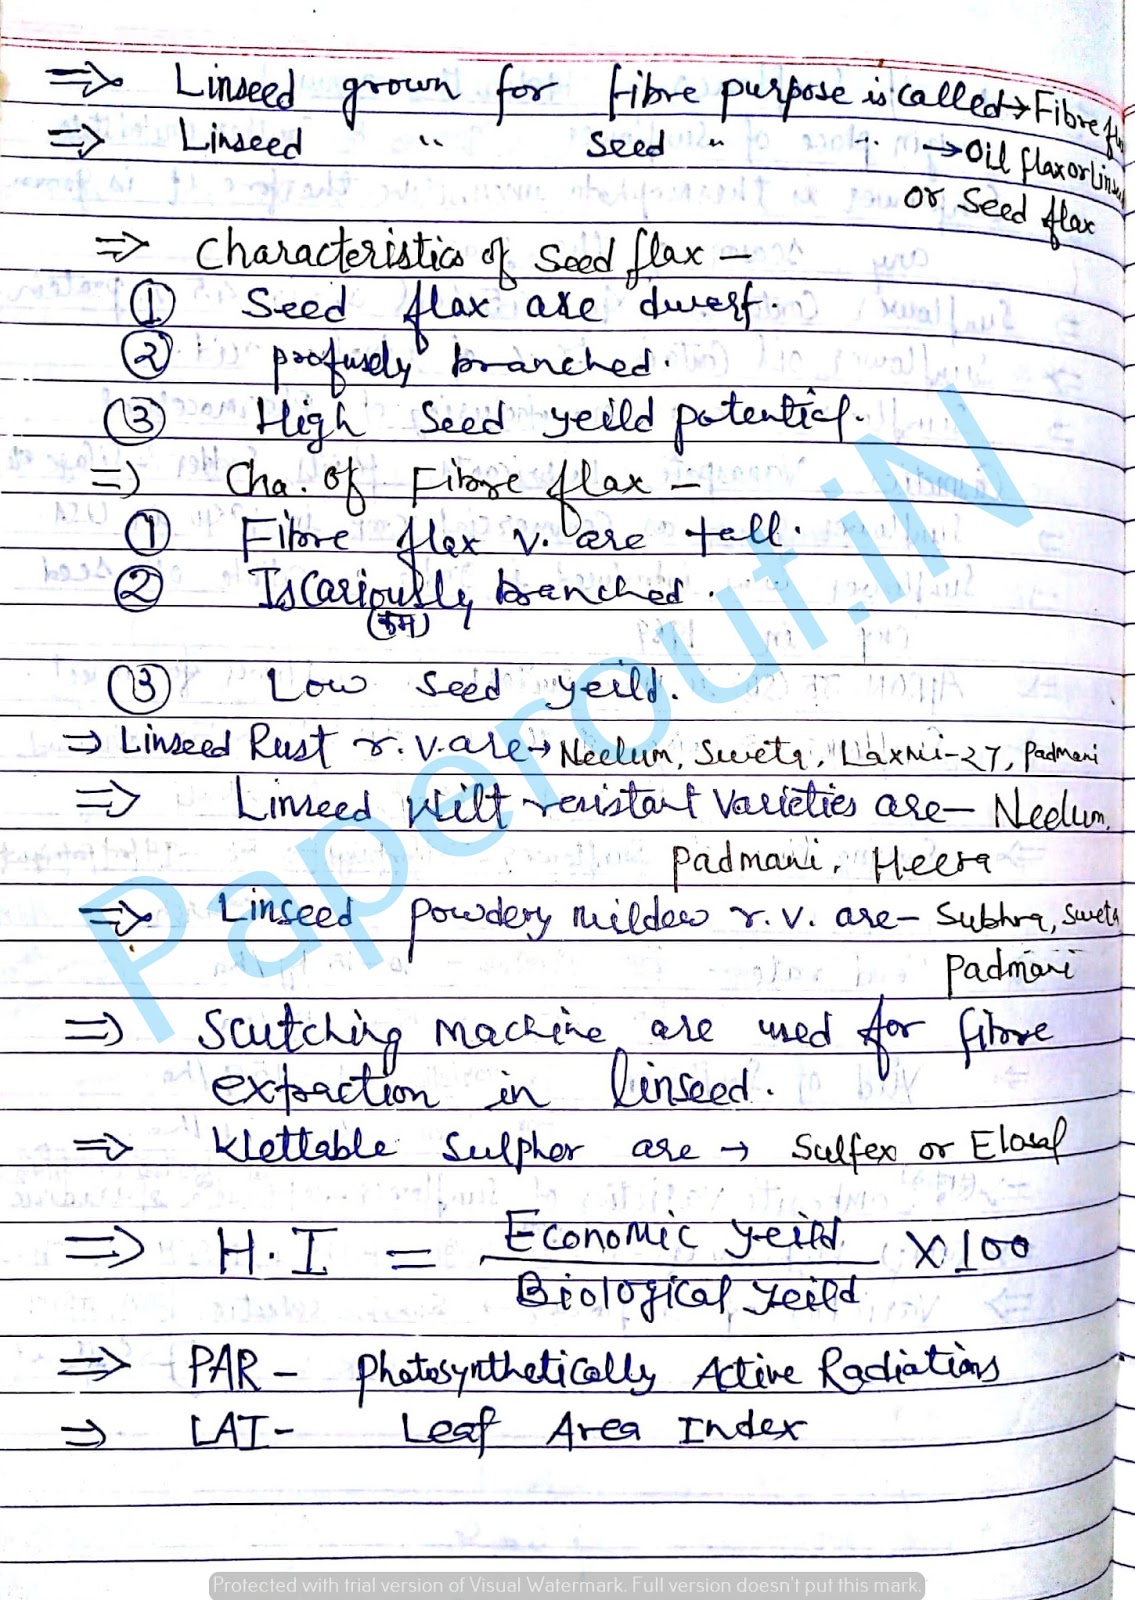 ⇒ Linseed grown for fibre purpose is called → Fibre flax
⇒ Linseed " Seed " " → Oil flax or Linseed
or Seed flax
⇒ Characteristics of Seed flax –
① Seed flax are dwarf.
② profusely branched.
③ High Seed yeild potential.
⇒ Cha. of Fibre flax –
① Fibre flax v. are tall.
② Iscariously branched.
(कम)
③ Low seed yeild.
⇒ Linseed Rust r.v. are → Neelum, Sweta, Laxmi-27, Padmani
⇒ Linseed Wilt resistant varieties are – Neelum,
Padmani, Heera
⇒ Linseed powdery mildew r.v. are – Subhra, Sweta
Padmani
⇒ Scutching machine are used for fibre
extraction in linseed.
⇒ Wettable Sulpher are → Sulfex or Elosal
⇒ H.I = Economic yeild / Biological yeild × 100
⇒ PAR – Photosynthetically Active Radiations
⇒ LAI – Leaf Area Index
Paperout.iN
Protected with trial version of Visual Watermark. Full version doesn't put this mark.